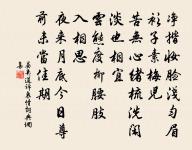 淨揩妝臉淺勻眉
衫子素梅兒
苦無心緒梳洗閑
淡也相宜
雲態度柳腰肢
入相思
夜來月底今日尊
前未當佳期
晏幾道訴衷情詞